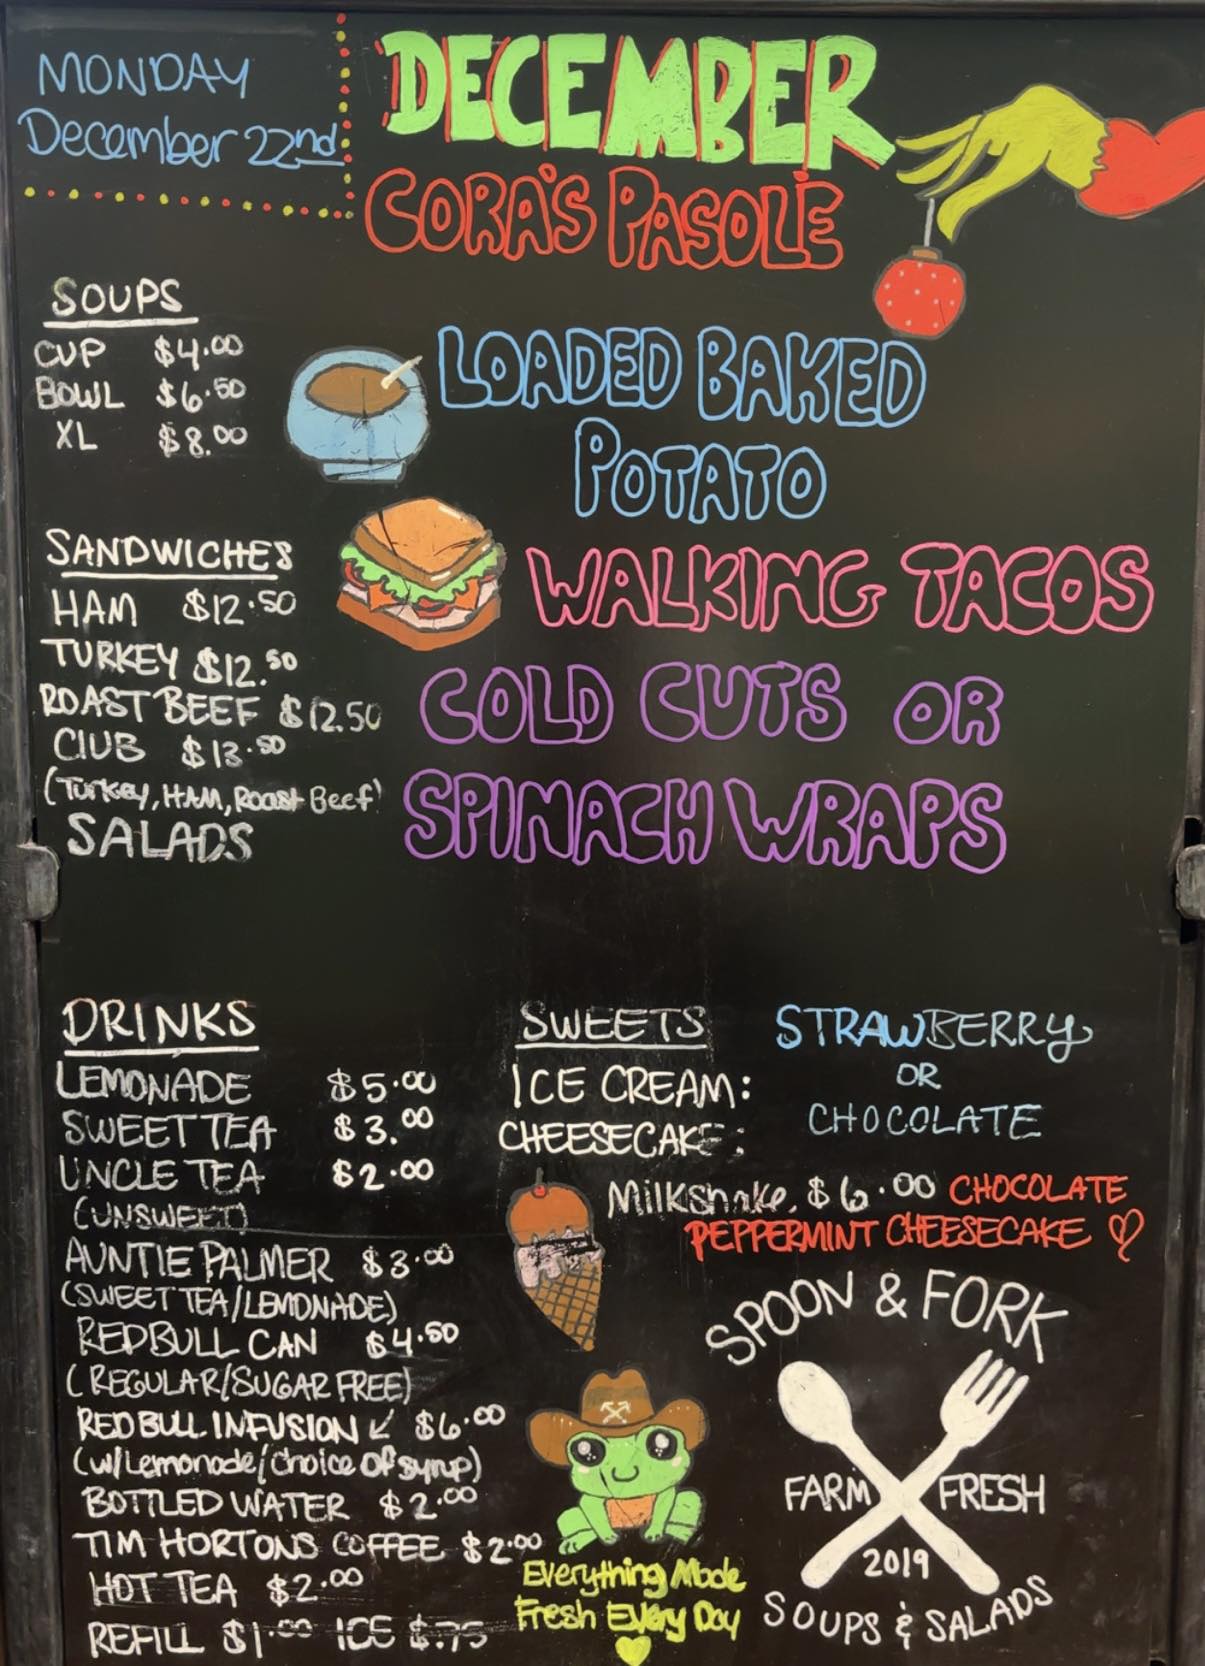 MONDAY
December 22nd
DECEMBER
CORA'S PASOLE
SOUPS
CUP $4.00
BOWL $6.50
XL $8.00
LOADED BAKED
POTATO
SANDWICHES
HAM $12.50
TURKEY $12.50
ROAST BEEF $12.50
CLUB $13.50
(Turkey, HAM, Roast Beef)
SALADS
WALKING TACOS
COLD CUTS OR
SPINACH WRAPS
DRINKS
LEMONADE $5.00
SWEET TEA $3.00
UNCLE TEA $2.00
(UNSWEET)
AUNTIE PALMER $3.00
(SWEET TEA/LEMONADE)
REDBULL CAN $4.50
(REGULAR/SUGAR FREE)
RED BULL INFUSION ↙ $6.00
(w/Lemonade/choice of syrup)
BOTTLED WATER $2.00
TIM HORTONS COFFEE $2.00
HOT TEA $2.00
REFILL $1.00 ICE $.75
SWEETS
ICE CREAM:
CHEESECAKE:
STRAWBERRY
OR
CHOCOLATE
Milkshake. $6.00 CHOCOLATE
PEPPERMINT CHEESECAKE ♡
Everything Made
Fresh Every Day
SPOON & FORK
FARM FRESH
2019
SOUPS & SALADS